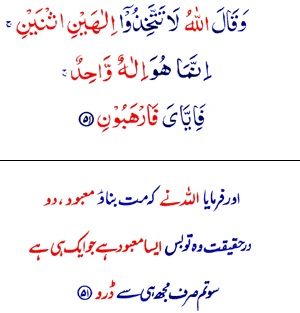 وَقَالَ اللّٰهُ لَا تَتَّخِذُوْۤا اِلٰهَيْنِ اثْنَيْنِ ۚ
اِنَّمَا هُوَ اِلٰهٌ وَّاحِدٌ ۚ
فَاِيَّايَ فَارْهَبُوْنِ ﴿۵۱﴾
اور فرمایا اللہ نے کہ مت بناؤ معبود ، دو
درحقیقت وہ تو بس ایسا معبود ہے جو ایک ہی ہے
سو تم صرف مجھ ہی سے ڈرو ﴿۵۱﴾